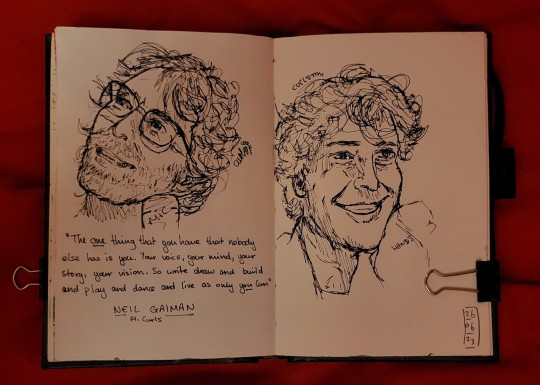 MIC
"The one thing that you have that nobody
else has is you. Your voice, your mind, your
story, your vision. So write draw and build
and play and dance and live as only you can"
NEIL GAIMAN
ft. Curls
26
06
23